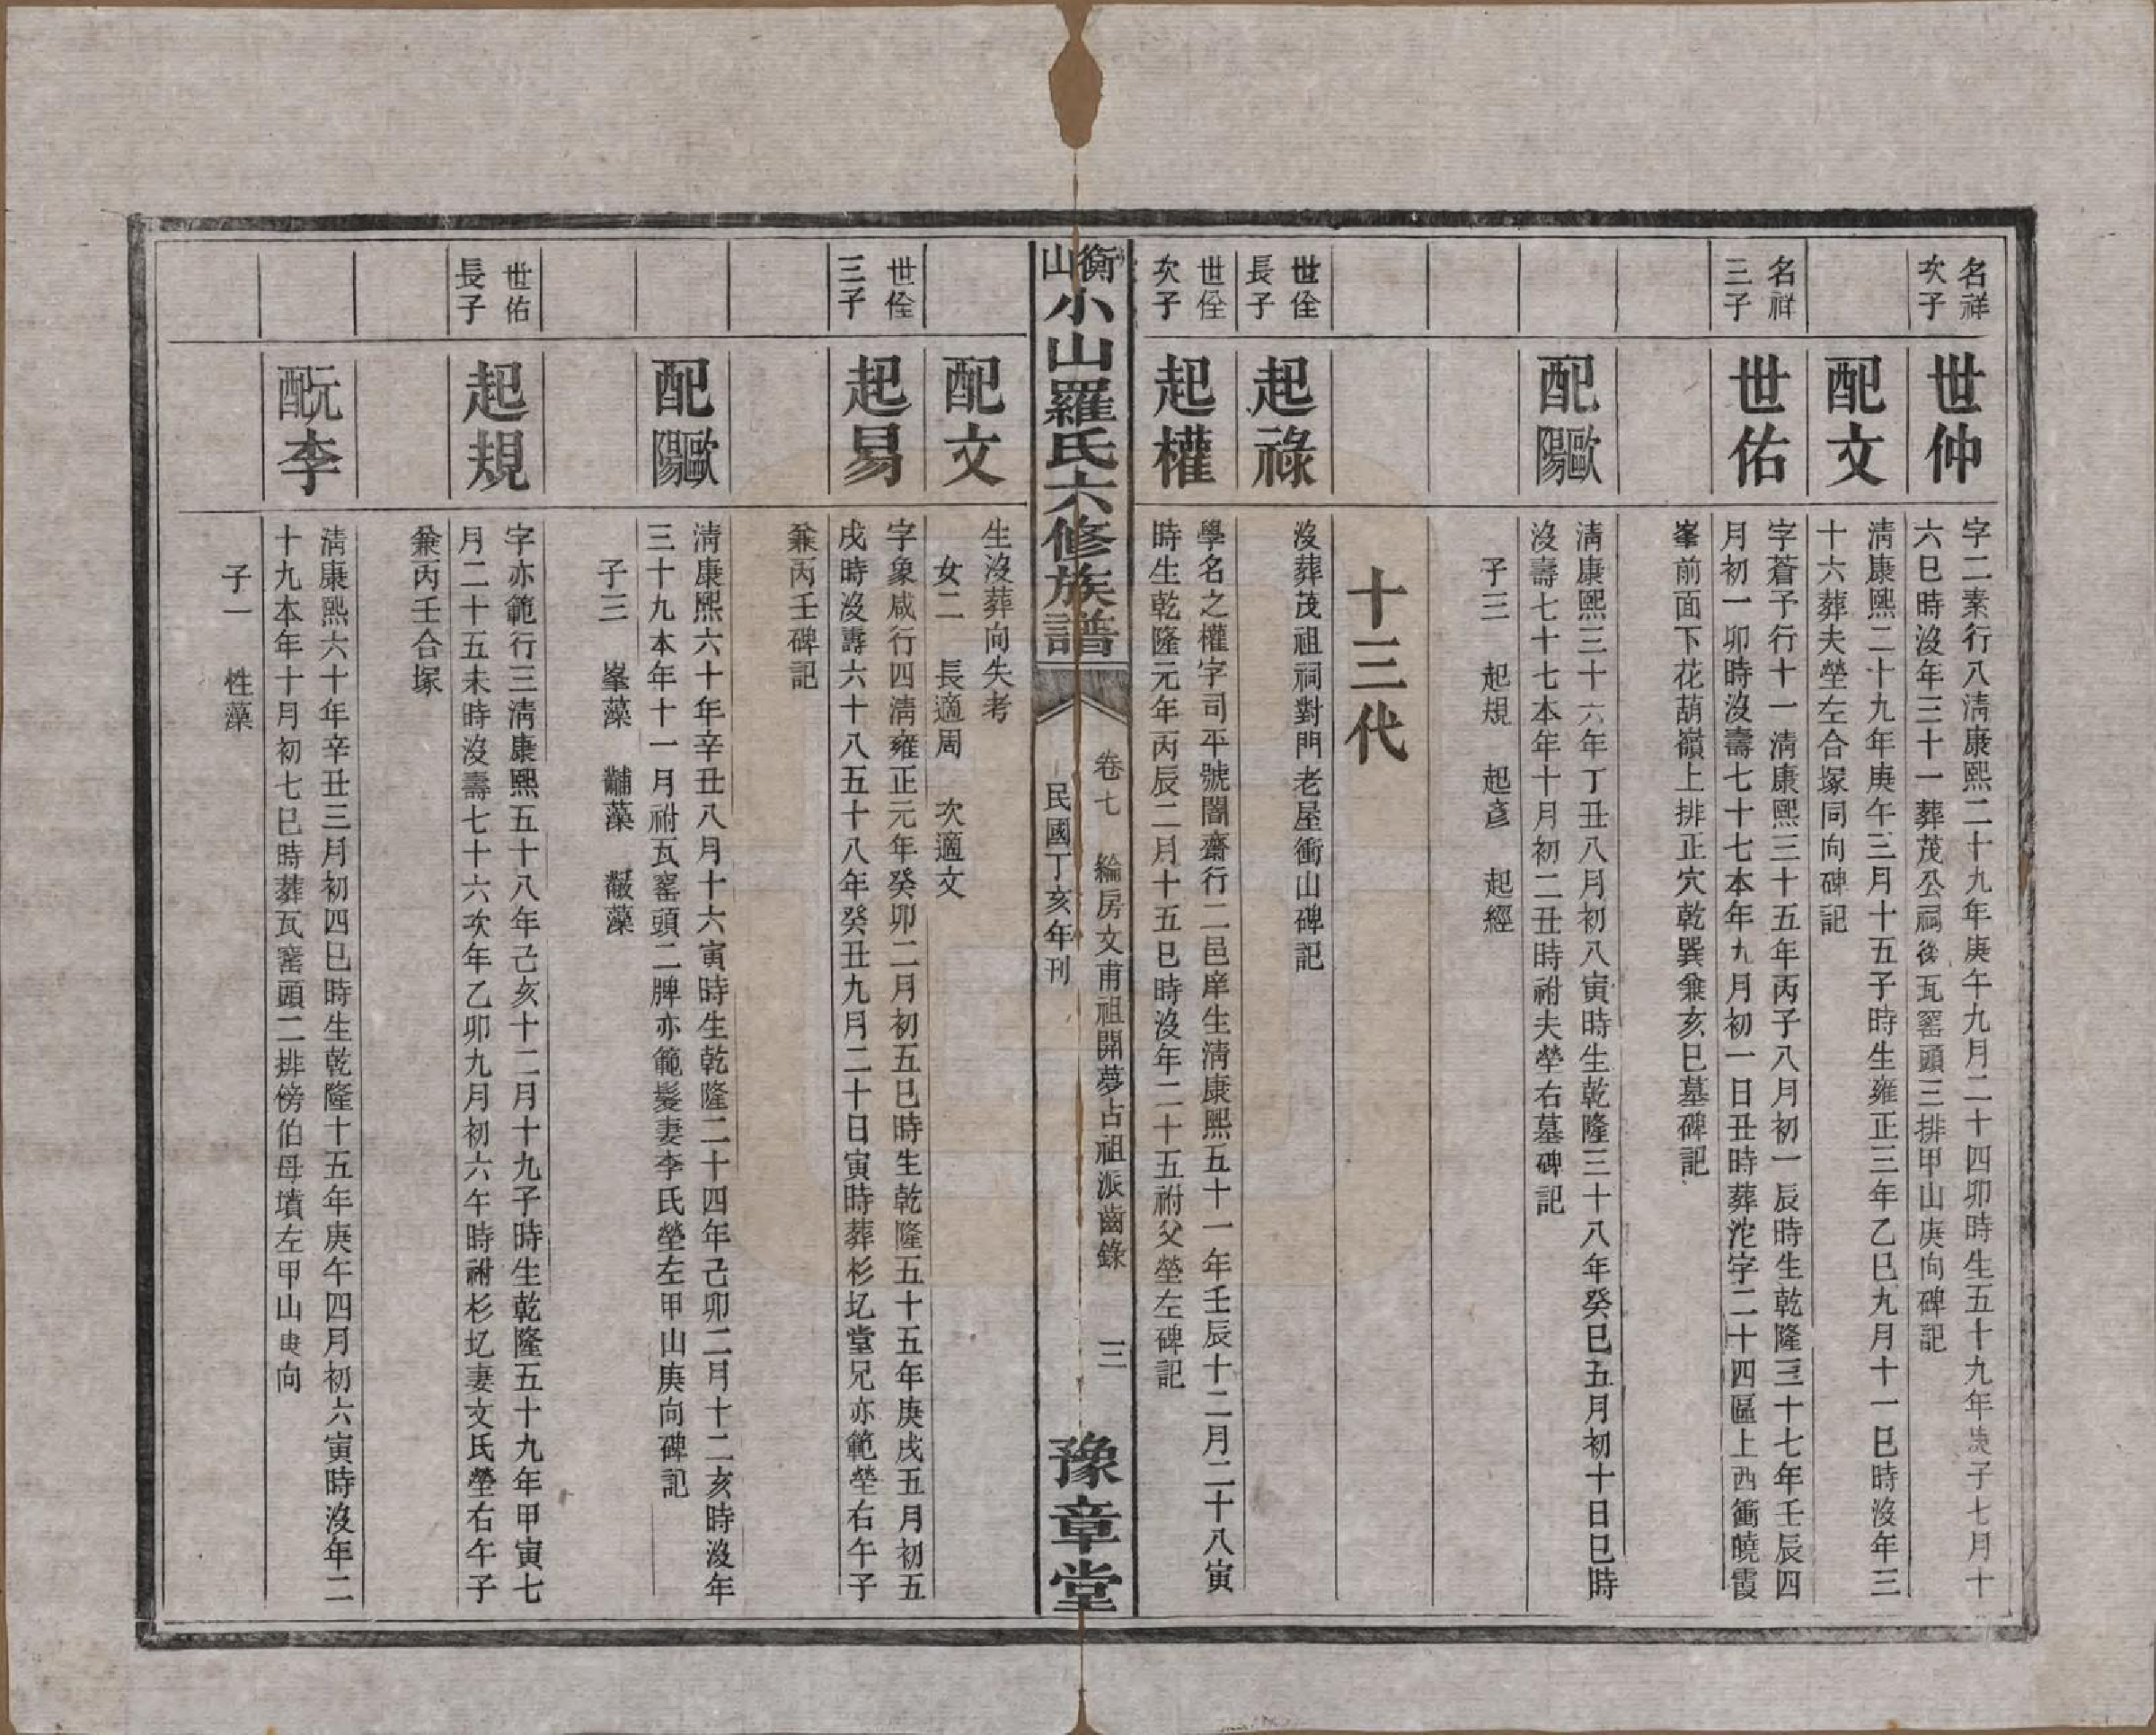 名祥
次子
世仲
字二素行八淸康熙二十九年庚午九月二十四卯時生五十九年庚子七月十
六巳時沒年三十一葬茂公祠後瓦窰頭三排甲山庚向碑記
配文
淸康熙二十九年庚午三月十五子時生雍正三年乙巳九月十一巳時沒年三
十六葬夫塋左合塚同向碑記
名祥
三子
世佑
字蒼予行十一淸康熙三十五年丙子八月初一辰時生乾隆三十七年壬辰四
月初一卯時沒壽七十七本年九月初一日丑時葬沱字二十四區上西衝曉霞
峯前面下花葫嶺上排正穴乾巽兼亥巳墓碑記
配歐陽
淸康熙三十六年丁丑八月初八寅時生乾隆三十八年癸巳五月初十日巳時
沒壽七十七本年十月初二丑時祔夫塋右墓碑記
子三 起規 起彥 起經
十三代
世佺
長子
起祿
沒葬茂祖祠對門老屋衝山碑記
世佺
次子
起權
學名之權字司平號闇齋行二邑庠生淸康熙五十一年壬辰十二月二十八寅
時生乾隆元年丙辰二月十五巳時沒年二十五祔父塋左碑記
衡山小山羅氏六修族譜
卷七 綸房文甫祖開夢占祖派齒錄 三
民國丁亥年刊
豫章堂
配文
生沒葬向失考
女二 長適周 次適文
世佺
三子
起易
字象咸行四淸雍正元年癸卯二月初五巳時生乾隆五十五年庚戌五月初五
戌時沒壽六十八五十八年癸丑九月二十日寅時葬杉圠堂兄亦範塋右午子
兼丙壬碑記
配歐陽
淸康熙六十年辛丑八月十六寅時生乾隆二十四年己卯二月十二亥時沒年
三十九本年十一月祔瓦窰頭二脾亦範髮妻李氏塋左甲山庚向碑記
子三 峯藻 黼藻 黻藻
世佑
長子
起規
字亦範行三淸康熙五十八年己亥十二月十九子時生乾隆五十九年甲寅七
月二十五未時沒壽七十六次年乙卯九月初六午時祔杉圠妻文氏塋右午子
兼丙壬合塚
元配李
淸康熙六十年辛丑三月初四巳時生乾隆十五年庚午四月初六寅時沒年二
十九本年十月初七巳時葬瓦窰頭二排傍伯母墳左甲山庚向
子一 性藻